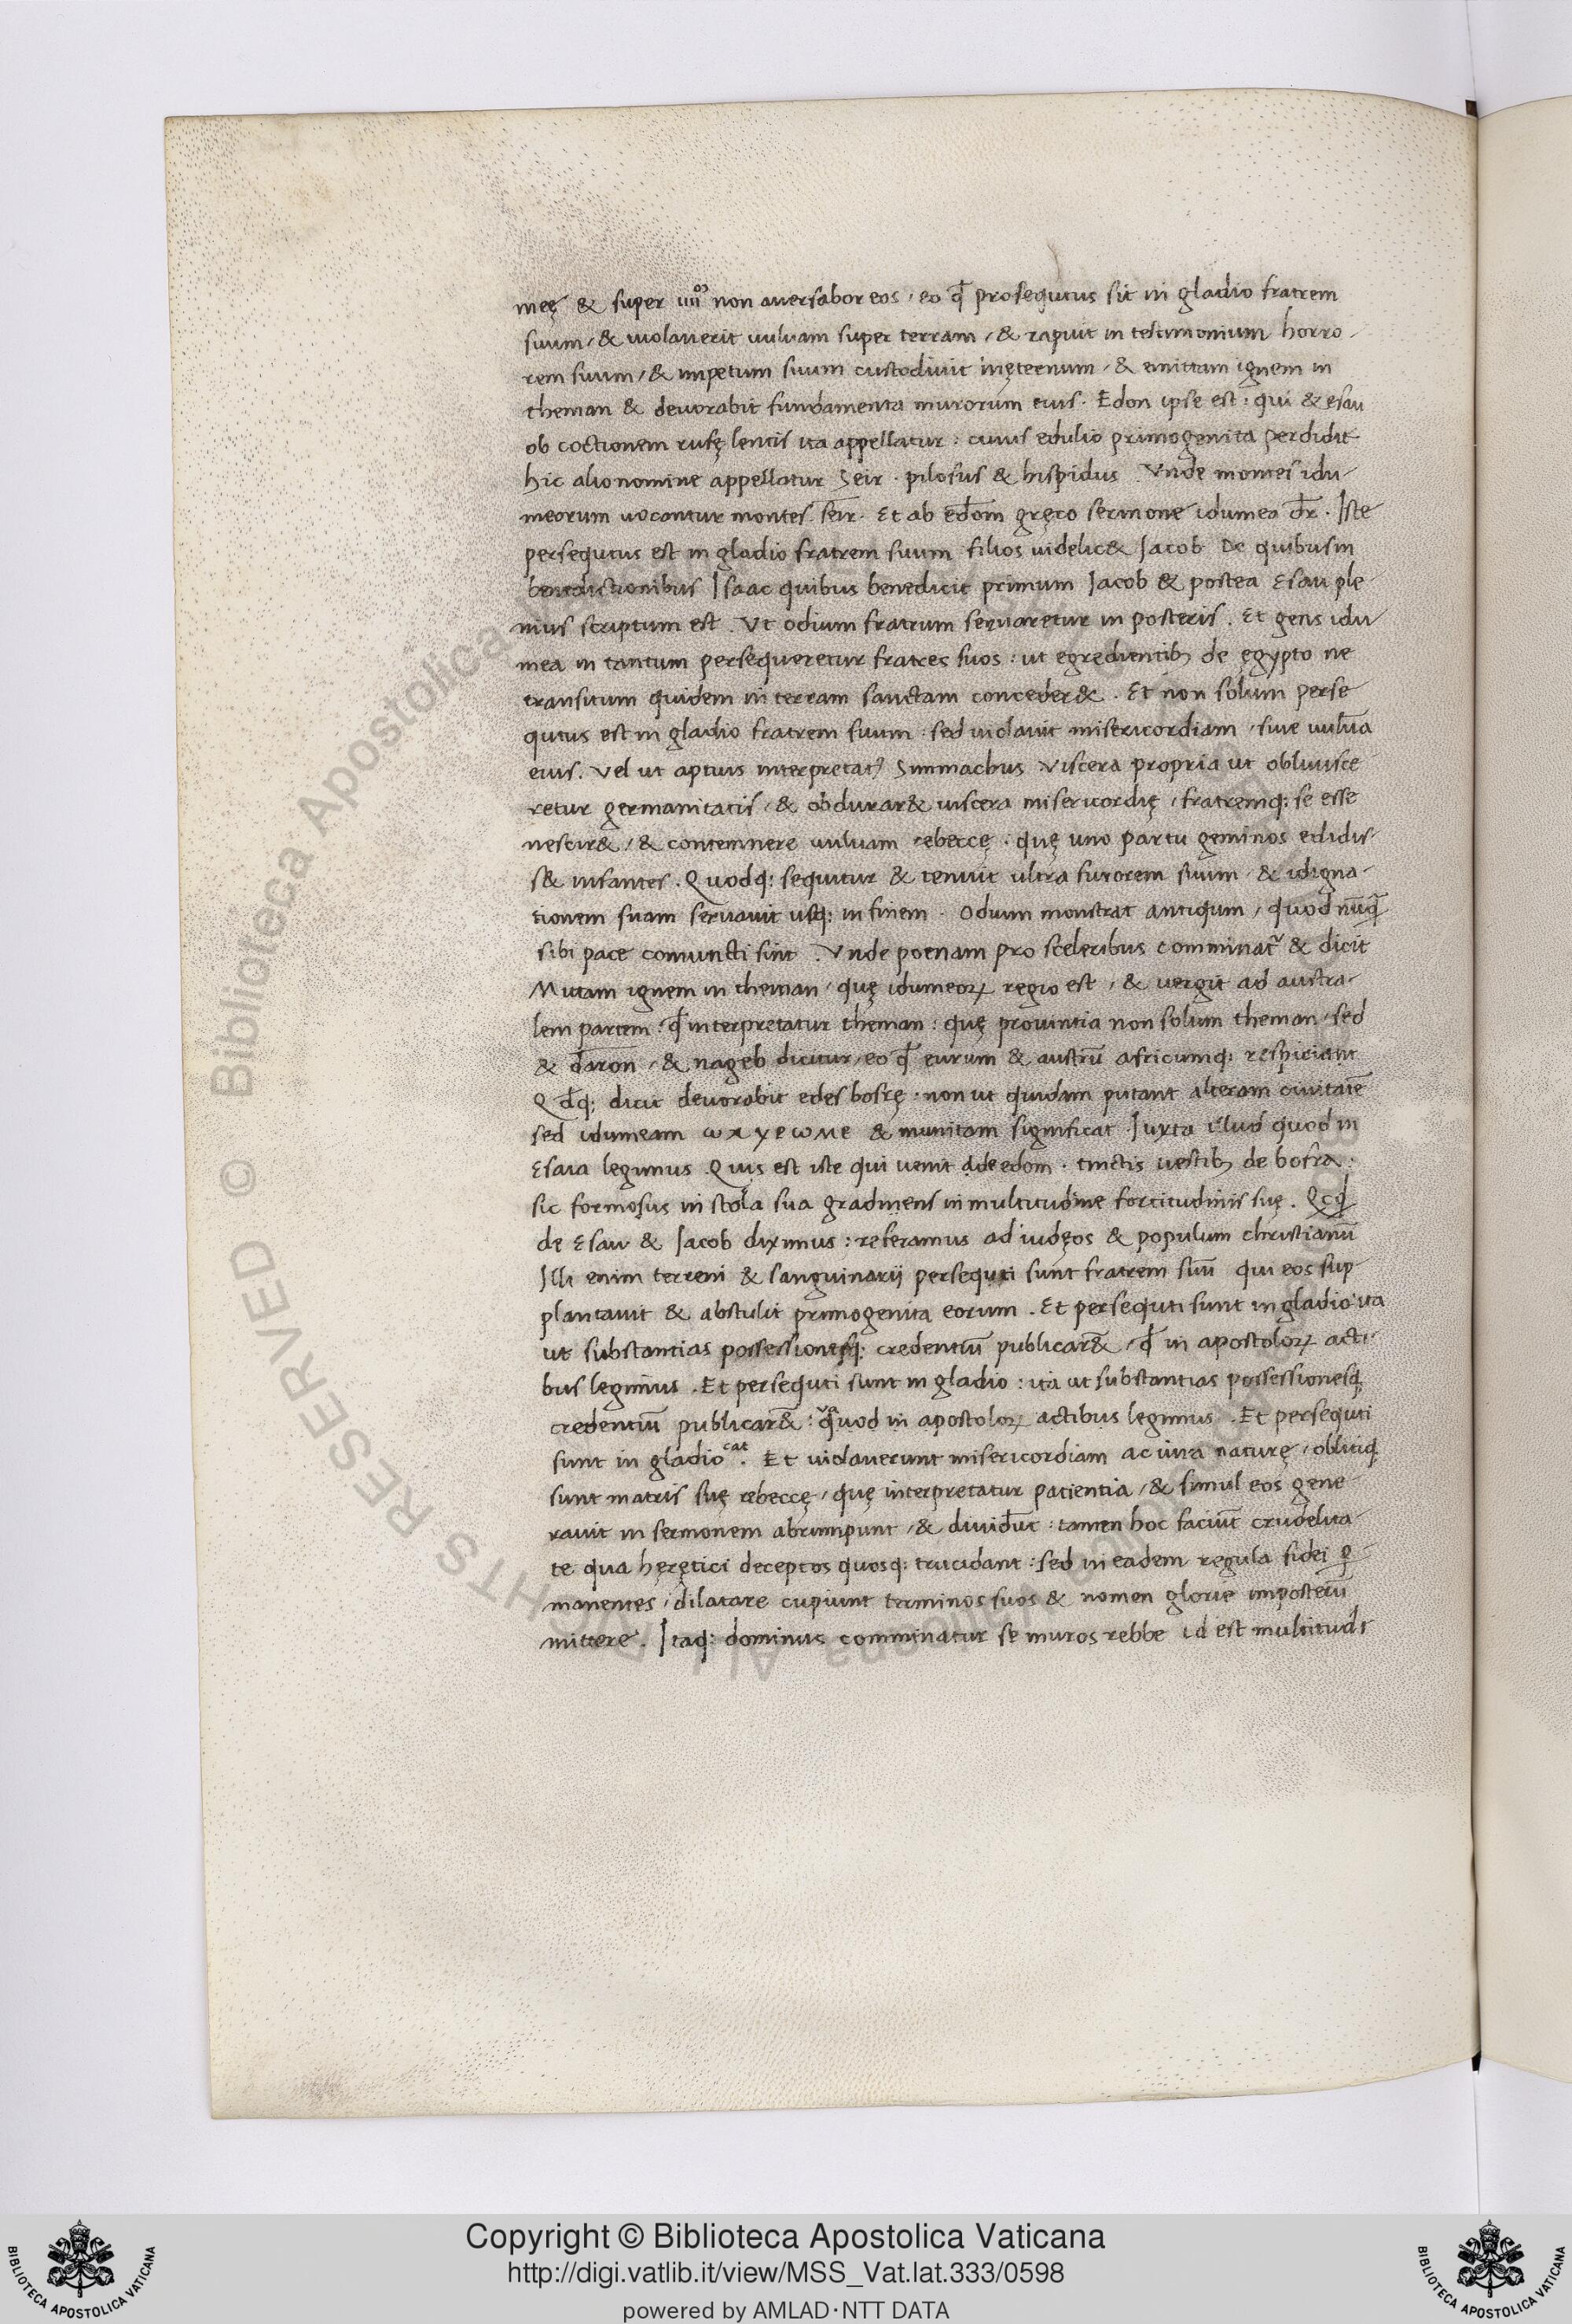 meę & super iiii^or non auersabor eos / eo q̄ prosequtus sit in gladio fratrem
suum / & uiolauerit uuluam super terram / & rapuit in testimonium horro-
rem suum / & impetum suum custodiuit inęternum / & emittam ignem in
theman & deuorabit fundamenta murorum eius. Edon ipse est: qui & esau
ob coctionem rufę lentis ita appellatur: cuius edulio primogenita perdidit
hic alio nomine appellatur Seir. pilosus & hispidus. Vnde montes idu-
meorum uocantur montes seir. Et ab edom gręco sermone idumea dr̄. Iste
persequtus est in gladio fratrem suum filios uidelic& Iacob De quibus in
benedictionibus Isaac quibus benedicit primum Iacob & postea Esau ple-
nius scriptum est. Vt odium fratrum seruaretur in posteris. Et gens idu-
mea in tantum persequeretur fratres suos: ut egredientib; de ęgypto ne
transitum quidem in terram sanctam conceder&. Et non solum perse
qutus est in gladio fratrem suum: sed uiolauit misericordiam / siue uuluā
eius. Vel ut aptius interpretat᷒ Simmachus Viscera propria ut obliuisce
retur germanitatis / & obdurar& uiscera misericordię / fratremq; se esse
nescir& / & contemnere uuluam rebeccę. quę uno partu geminos edidis-
s& infantes. Quodq; sequitur & tenuit ultra furorem suum & idigna-
tionem suam seruauit usq; in finem. Odium monstrat antiqum / quod nūq̄
sibi pace coniuncti sint. Vnde poenam pro sceleribus comminat᷒ & dicit
Mittam ignem in theman / quę idumeoꝝ regio est / & uergit ad austra-
lem partem: q̄ interpretatur theman: quę prouintia non solum theman / sed
& daron / & nageb dicitur / eo q̄ eurum & austrū africumq; respiciant
Q d̄q; dicit deuorabit edes bosrę. non ut quidam putant alteram ciuitatē
sed idumeam ωχyeωμe & munitam significat Iuxta illud quod in
Esaia legimus Quis est iste qui uenit de edom. tinctis uestib; de bosra:
sic formosus in stola sua gradiens in multitudine fortitudinis suę. Qcq̄
de Esau & Iacob diximus: referamus ad iudęos & populum christianū
Illi enim terreni & sanguinarij persequti sunt fratrem suū qui eos sup-
plantauit & abstulit primogenita eorum. Et persequti sunt in gladio ita
ut substantias possessionesq; credentiū publicar& / q̄ in apostoloꝝ acti-
bus legimus. Et persequti sunt in gladio: ita ut substantias possessionesq;
credentiū publicar&: quod in apostoloꝝ actibus legimus. Et persequti
sunt in gladio cat. Et uiolauerunt misericordiam ac iura naturę / oblitiq;
sunt matris suę rebeccę / quę interpretatur patientia / & simul eos gene-
rauit in sermonem abrumpunt / & diuidūt: tamen hoc faciūt crudelita-
te qua hęrętici deceptos quosq; trucidant: sed in eadem regula fidei ꝑ
manentes / dilatare cupiunt terminos suos & nomen glorie imposterū
mittere. Itaq; dominus comminatur se muros rebbe id est multitudi
Copyright © Biblioteca Apostolica Vaticana
http://digi.vatlib.it/view/MSS_Vat.lat.333/0598
powered by AMLAD·NTT DATA
BIBLIOTECA APOSTOLICA VATICANA
BIBLIOTECA APOSTOLICA VATICANA